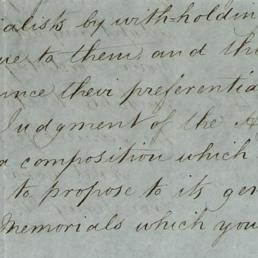 ialists by with-holdin
ue to them, and th
ance their preferentia
Judgment of the A
a composition which
to propose to its gen
Memorials which you